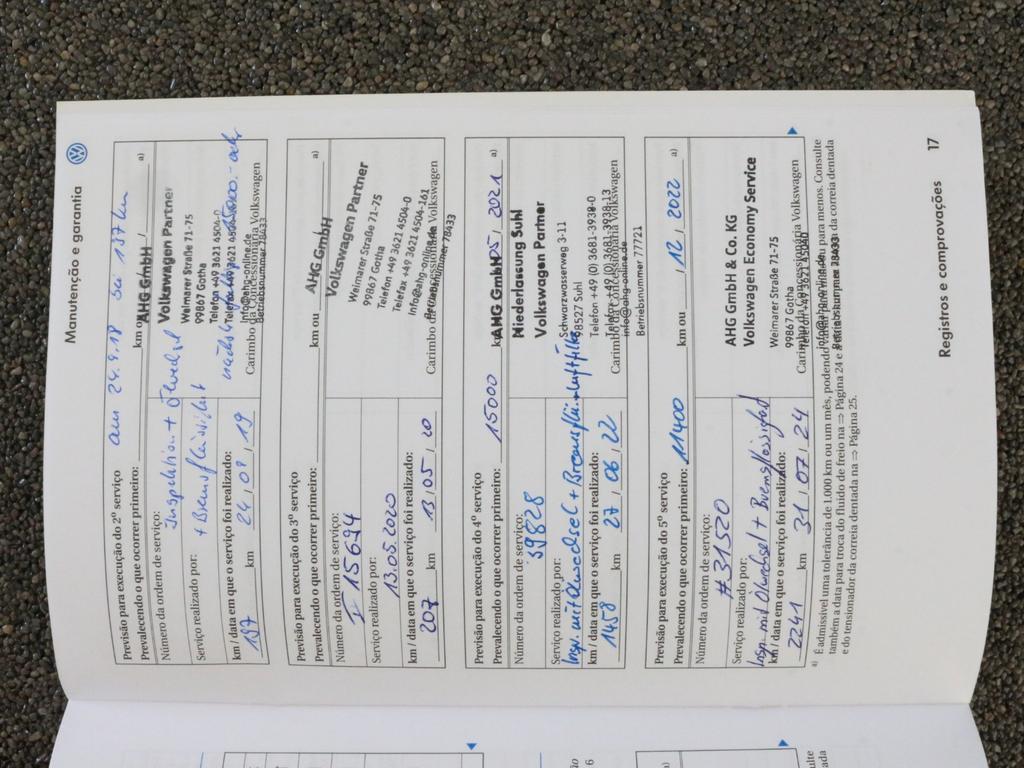 Manutenção e garantia
Previsão para execução do 2º serviço
am 24.9.18 bei 137 km
Prevalecendo o que ocorrer primeiro: km ou / a)
Número da ordem de serviço:
Inspektion + Ölwechsel
+ Bremsflüssigkeit
Serviço realizado por:
AHG GmbH
Volkswagen Partner
Weimarer Straße 71-75
99867 Gotha
Telefon +49 3621 4504-0
info@ahg-online.de
Betriebsnummer 78433
Carimbo da Concessionária Volkswagen
km / data em que o serviço foi realizado:
197 km 24 / 09 / 19
Previsão para execução do 3º serviço
Prevalecendo o que ocorrer primeiro: km ou a)
Número da ordem de serviço:
I 15694
Serviço realizado por:
13.05.2020
AHG GmbH
Volkswagen Partner
Weimarer Straße 71-75
99867 Gotha
Telefon +49 3621 4504-0
Telefax +49 3621 4504-161
info@ahg-online.de
Betriebsnummer 78433
Carimbo da Concessionária Volkswagen
km / data em que o serviço foi realizado:
207 km 13 / 05 / 20
Previsão para execução do 4º serviço
Prevalecendo o que ocorrer primeiro: 15000 km ou 05 / 2021 a)
Número da ordem de serviço:
39828
Serviço realizado por:
Insp. mit Ölwechsel + Bremsflü. + Luftfilter
AHG GmbH
Niederlassung Suhl
Volkswagen Partner
Schwarzwasserweg 3-11
98527 Suhl
Telefon +49 (0) 3681-3938-0
Telefax +49 (0) 3681-3938-13
info@ahg-online.de
Betriebsnummer 77721
Carimbo da Concessionária Volkswagen
km / data em que o serviço foi realizado:
1458 km 27 / 06 / 22
Previsão para execução do 5º serviço
Prevalecendo o que ocorrer primeiro: 11400 km ou / 12 / 2022 a)
Número da ordem de serviço:
#31520
Serviço realizado por:
Insp. mit Ölwechsel + Bremsflüssigkeit
AHG GmbH & Co. KG
Volkswagen Economy Service
Weimarer Straße 71-75
99867 Gotha
Carimbo da Concessionária Volkswagen
km / data em que o serviço foi realizado:
2241 km 31 / 07 / 24
a) É admissível uma tolerância de 1.000 km ou um mês, podendo para menos. Consulte
também a data para troca do fluido de freio na ⇒ Página 24 e a da correia dentada
e do tensionador da correia dentada na ⇒ Página 25.
Registros e comprovações 17